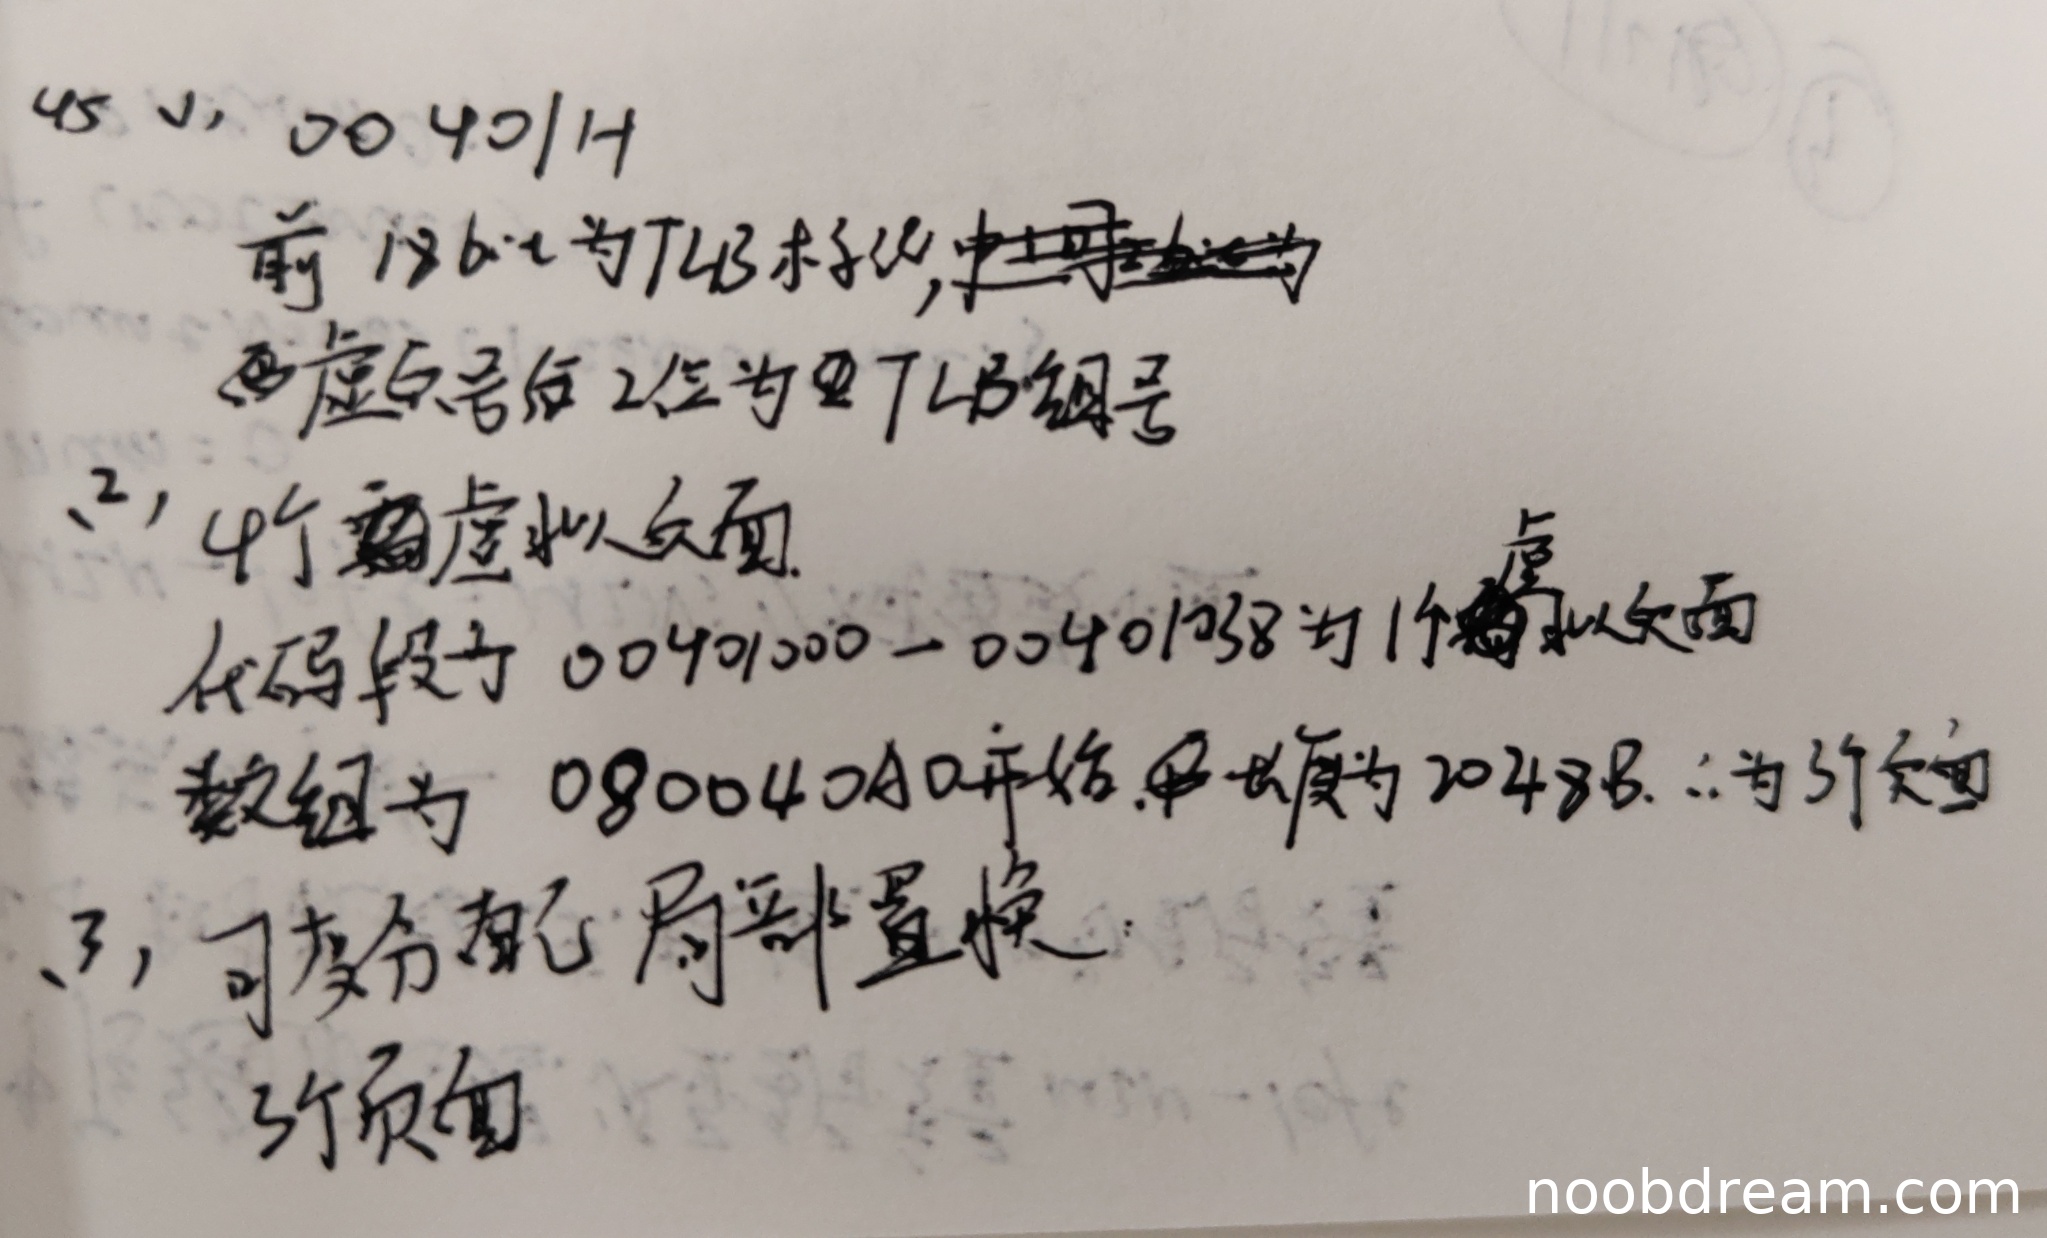 45 (1), 00401H
前 18bit 为TLB标记,
虚页号后2位为TLB组号
(2), 4个虚拟页面.
代码段为 00401000 - 00401038 为1个虚拟页面
数组为 080040A0开始. 长度为 2048B. ∴为3个页面
(3), 可变分配 局部置换.
3个页面
noobdream.com